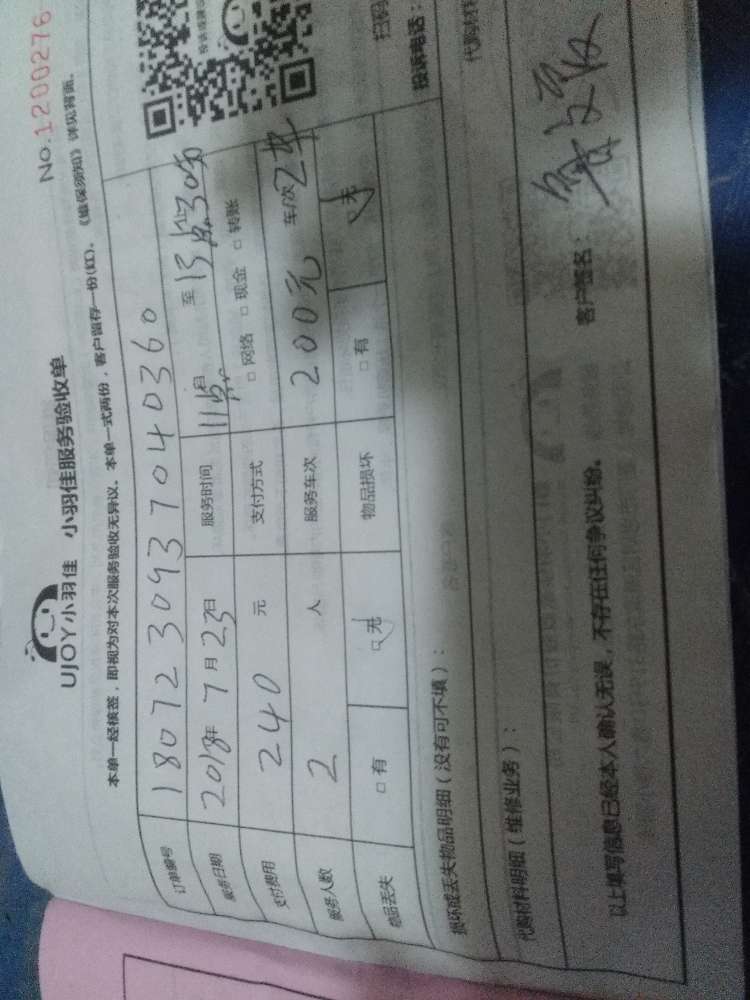 No.1200276
UJOY小羽佳 小羽佳服务验收单
本单一经核签，即视为对本次服务验收无异议。本单一式两份，客户留存一份(红)。《维保须知》详见背面。
订单编号 1807230937040360
服务日期 2018年 7月23日 服务时间 11点 至 13点30分
支付费用 240 元 支付方式 □网络 □现金 □转账
服务人数 2 人 服务车次 200元 车/次
物品丢失 □有 □无 物品损坏 □有 □无
损坏或丢失物品明细（没有可不填）： 投诉电话：
扫码
代购材料明细（维修业务）： 代购材料
以上填写信息已经本人确认无误，不存在任何争议纠纷。 客户签名：